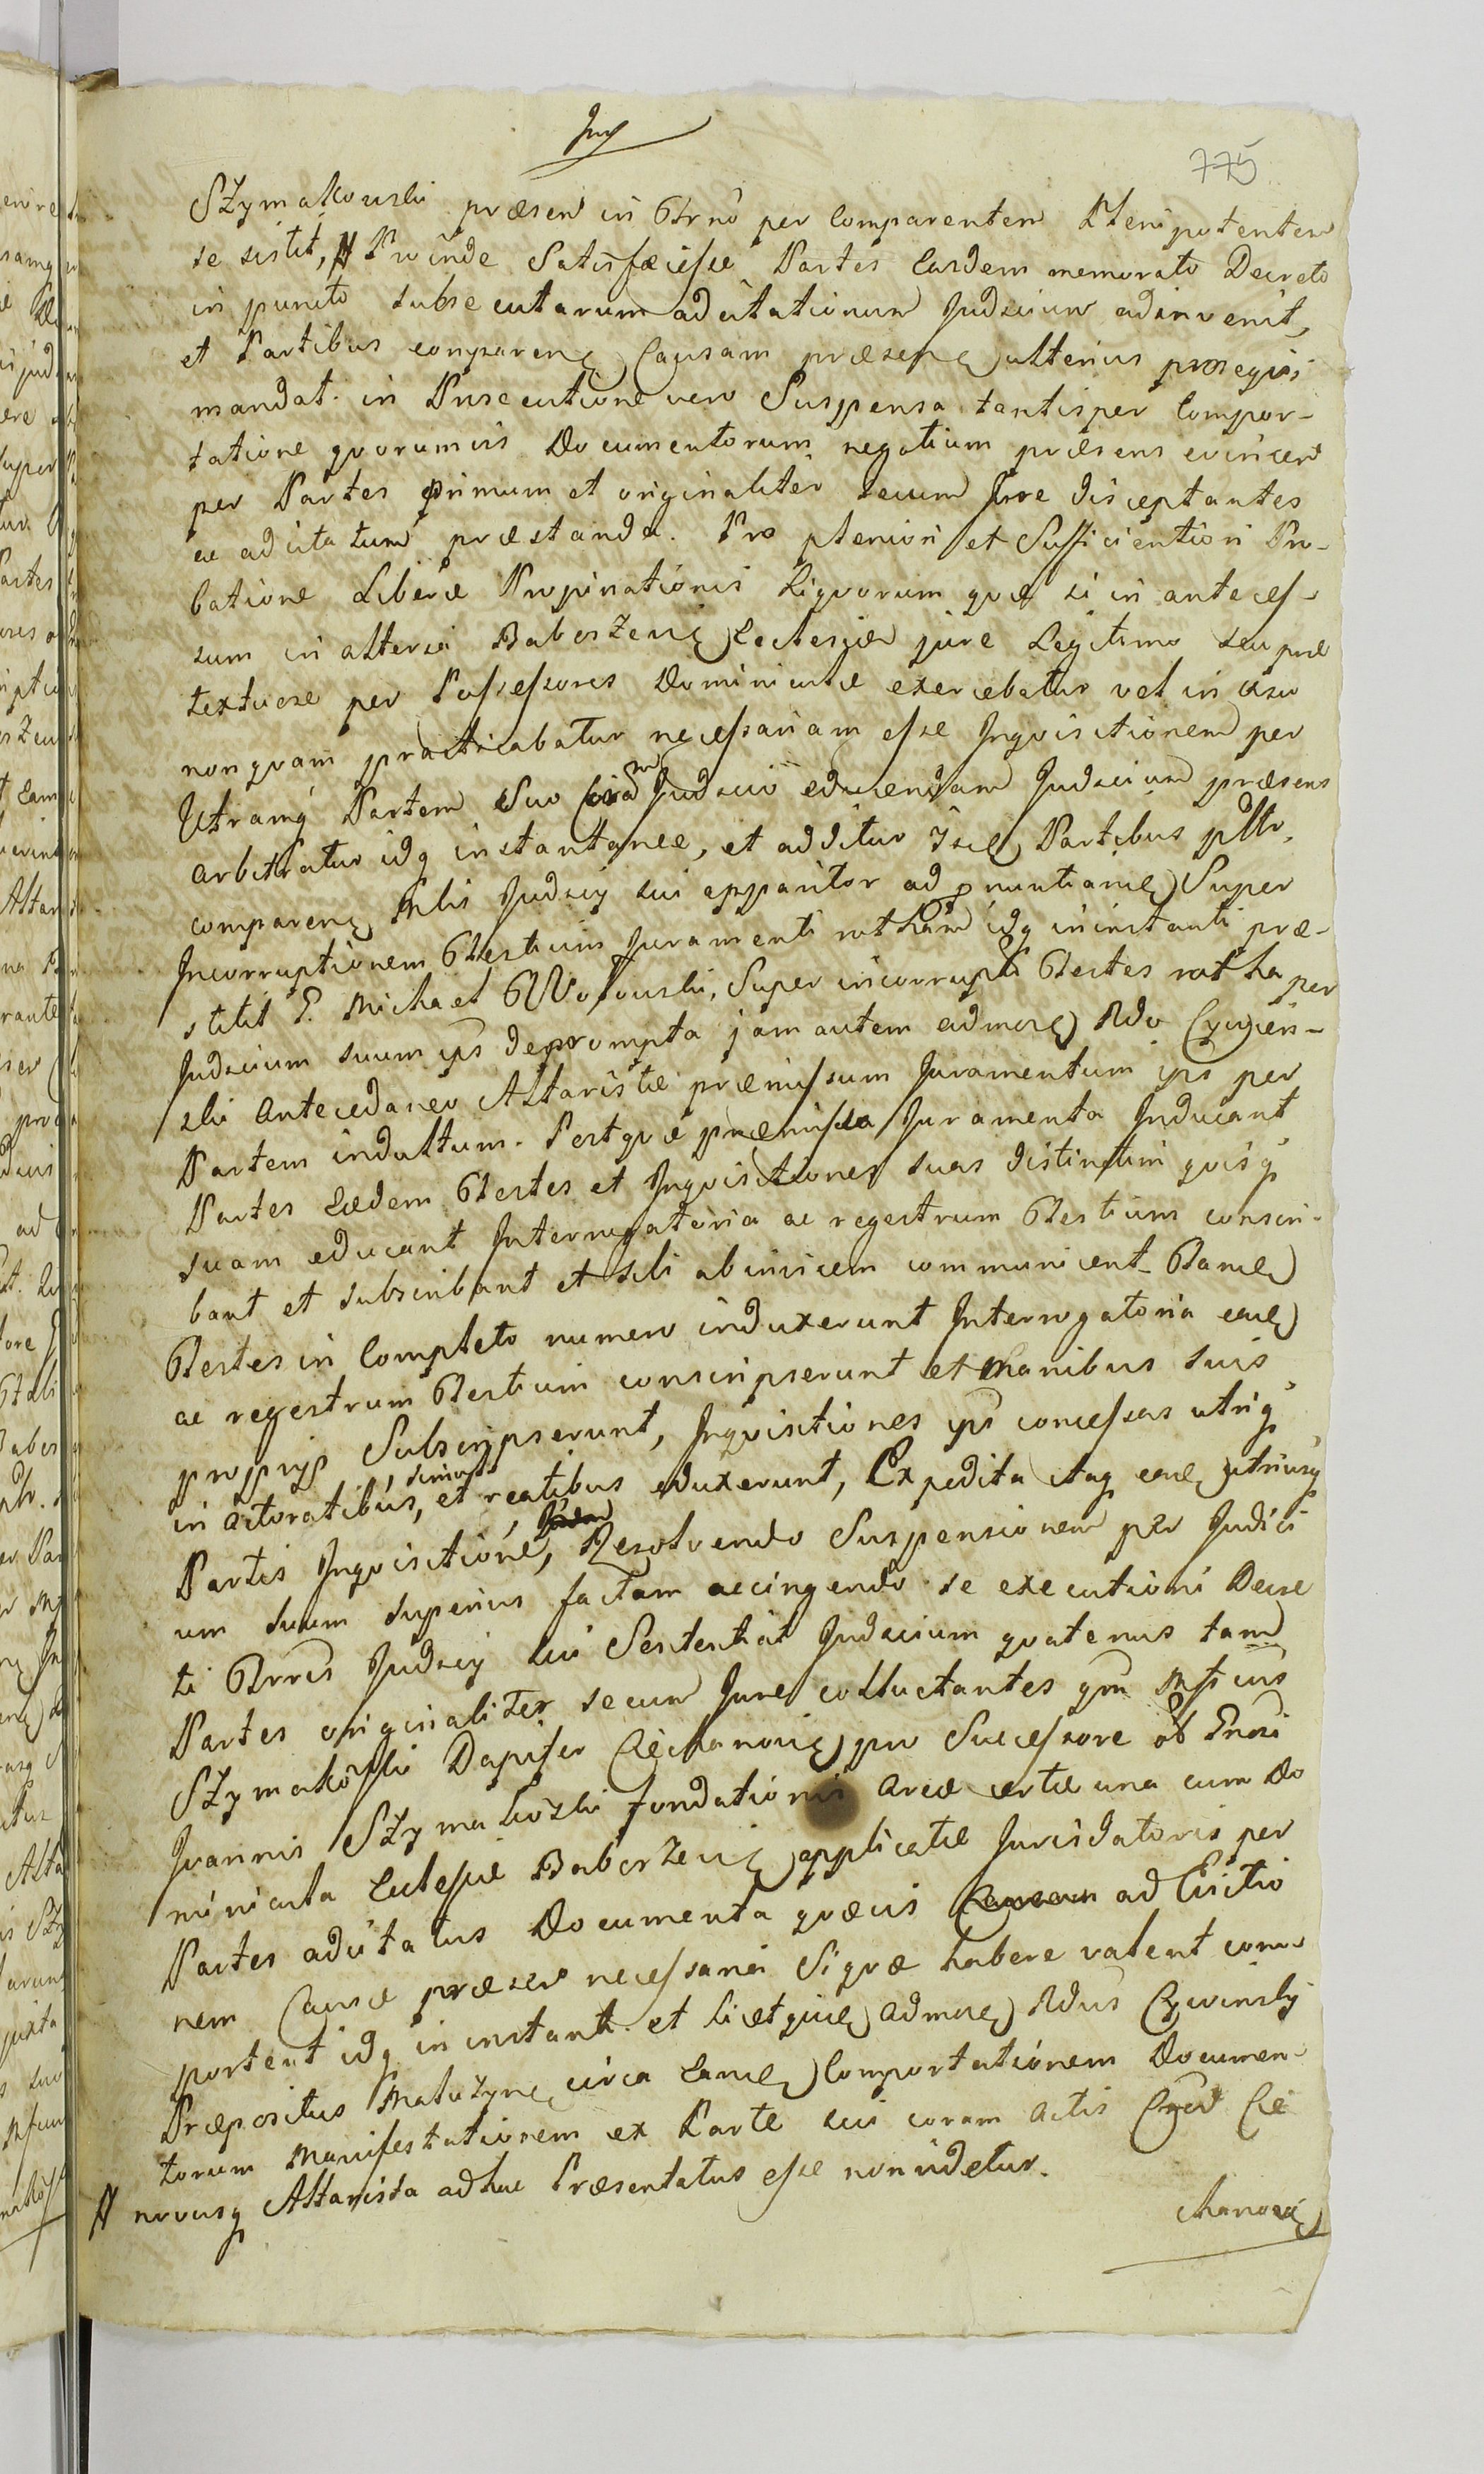 775
Szymakowski præsen in Trno per Comparentem Plenipotentem
se sistit, # Proinde Satisfæcisse Partes Easdem memorato Decreto
in puncto subsecutarum adcitationum Judicium adinvenit,
et Partibus comparen Causam præsen ulterius proseqvi
mandat. in Prosecutione vero Suspensa tantisper Compor-
tatione qvorumvis Documentorum negotium præsens evincen
per Partes primum et originaliter secum Jure disceptantes
ac adcitatum præstanda. Pro pleniori et Sufficientiori Pro-
batione Liberæ Propinationis Liqvorum qvæ si in anteces-
sum in alterio Baborzeni Ecclesiæ jure Legitimo seu præ
textuose per Possessores Dominicatæ exercebatur vel in usu
nonqvam practicabatur necessariam esse Inqvisitionem per
Utramq Partem Suo coram Judicio educendam Judicium præsens
arbitratur idq instantanee, et additur Partibus
comparen Mlis Judicij sui apparitor ad pnuntian Super
Incorruptionem Testium Juramenti rotham idq in instanti præ-
stitit P. Michael Super incorrupti Testes rotha per
Judicium suum ips deprompta jam autem admore Rdo Cywin-
ski Antecedaneo Altaristæ præmissum Juramentum ips per
Partem indultum. Post qvæ præmissa Juramenta Inducant
Partes Eædem Testes et Inqvisitiones suas distinctim qvisq
suam educant Interrogatoria ac regestrum Testium conscri-
bant et subscribant et sibi abinvicem communicent. Tand
Testes in Completo numero induxerunt Interrogatoria ead
ac regestrum Testium conscripserunt et Manibus suis
proprijs Subscripserunt, Inqvisitiones ips concessas utriq
in actoratibus, simul et reatibus eduxerunt, Expedita itaq ead utriusq
Partis Inqvisitione, Resolvendo Suspensionem per Judici
um suum superius factam accingendo se executioni Decre
ti Trris Judicij sui Sententiat Judicium qvatenus tam
Partes originaliter secum Jure colluctantes qm Mficus
Szymakowski Dapifer Ciechanovien pro Successore olim
Joannis Szymakowski fundationis Areæ certæ una cum Do
minicata Ecclesiæ Baborzeni applicatæ Jurisdatoris per
Partes adcitatus Documenta qvævis ad Evictio
nem Causæ præsen necessaria Siqvæ habere valent com
portent idq in instanti. et licet admore Rdus Cywinsky
Præpositus Maluzyn circa Eand Comportationem Documen-
torum Manifestationem ex Parte sui coram Actis Cie
chanovien
# novusq Altarista adhuc Præsentatus esse non videtur.